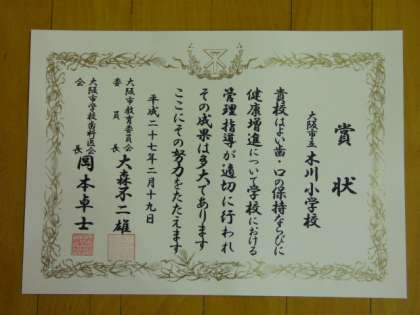 賞状
大阪市立 木川小学校
貴校はよい歯・口の保持ならびに
健康増進について学校における
管理指導が適切に行われ
その成果は多大であります
ここにその努力をたたえます
平成二十七年二月十九日
大阪市教育委員会
委員長 大森不二雄
大阪市学校歯科医会
会長 岡本卓士